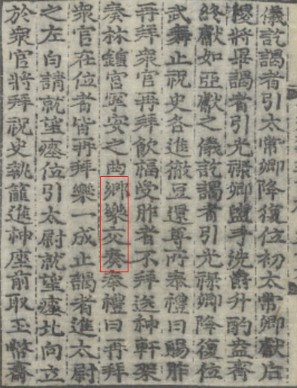 儀訖謁者引太常卿降復位初太常卿獻后
稷將畢謁者引光祿卿盥手洗爵升酌盎齋
終獻如亞獻之儀訖謁者引光祿卿降復位
武舞止祝史各進徹豆還尊所奉禮曰賜胙
再拜衆官再拜飮福受胙者不拜送神軒架
奏林鍾宮寧安之曲卿樂交奏奉禮曰再拜
衆官在位者皆再拜樂一成止謁者進太尉
之左白請就望瘞位引太尉就望瘞位北向立
於衆官將拜祝史執篚進神座前取玉幣齋